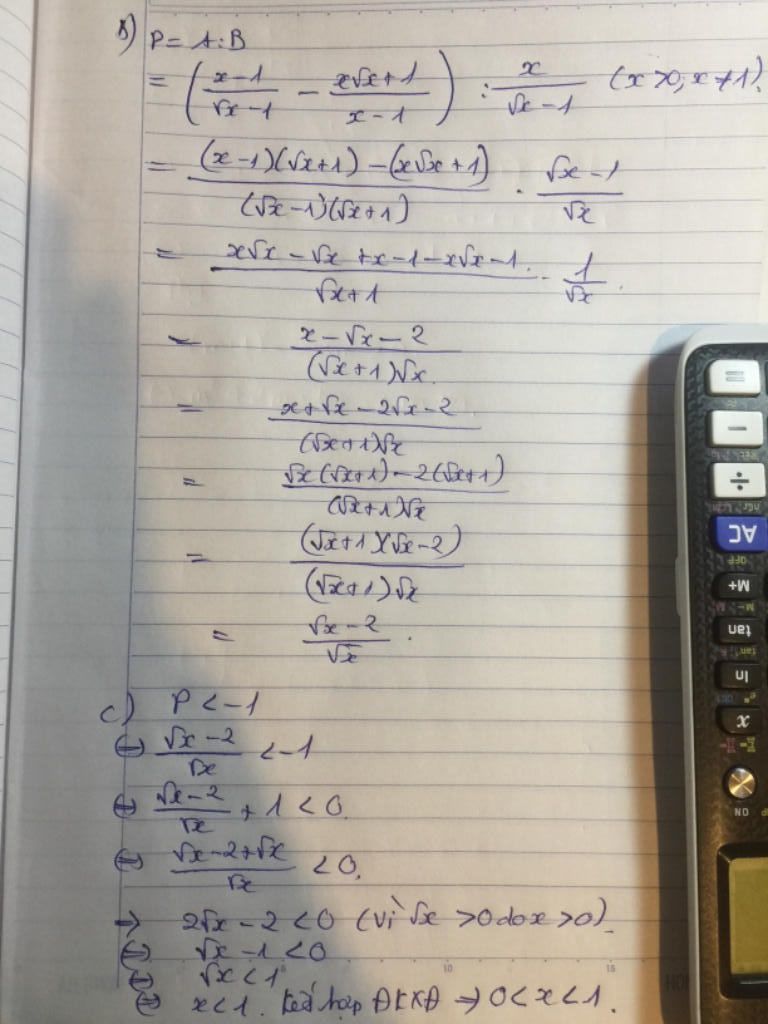 b) P = A : B
= ( (x-1)/(√x-1) - (x√x+1)/(x-1) ) : x/(√x-1) (x>0, x≠1).
= ((x-1)(√x+1) - (x√x+1))/((√x-1)(√x+1)) . (√x-1)/√x
= (x√x - √x + x - 1 - x√x - 1)/(√x+1) . 1/√x.
= (x - √x - 2)/((√x+1)√x.)
= (x + √x - 2√x - 2)/((√x+1)√x)
= (√x(√x+1) - 2(√x+1))/((√x+1)√x)
= ((√x+1)(√x-2))/((√x+1)√x)
= (√x-2)/√x .
c) P < -1
⇔ (√x-2)/√x < -1
⇔ (√x-2)/√x + 1 < 0.
⇔ (√x-2+√x)/√x < 0.
→ 2√x - 2 < 0 (Vì √x > 0 do x > 0).
⇔ √x - 1 < 0
⇔ √x < 1
⇔ x < 1. Kết hợp ĐKXĐ → 0 < x < 1.
=
-
÷
AC
OFF
M+
M-
tan
ln
x
ON
5
10
15